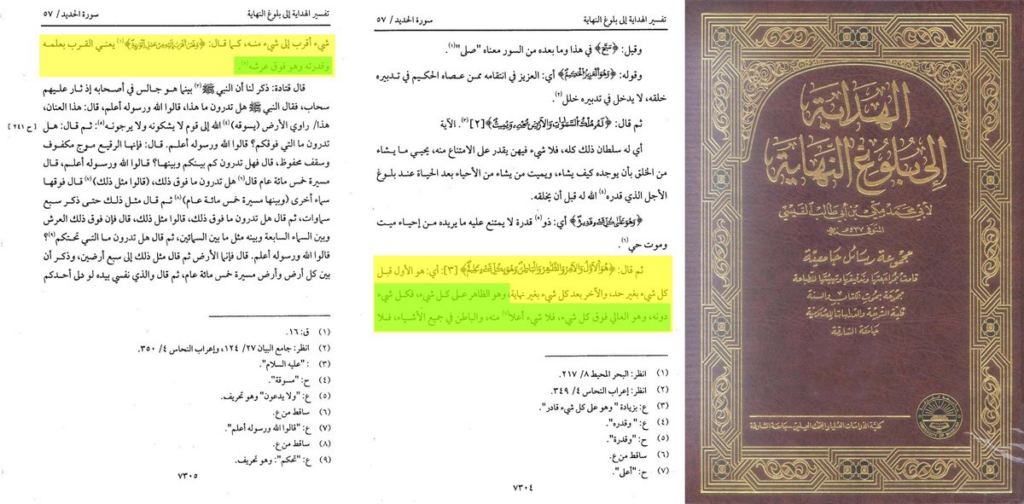 الهداية
إلى بلوغ النهاية
لأبي محمد مكي بن أبي طالب القيسي
المتوفى ٤٣٧هـ
مجموعة رسائل جامعية
قامت بمراجعتها وتدقيقها وتهيئتها للطباعة
مجموعة بحوث الكتاب والسنة
كلية الشريعة والدراسات الإسلامية
جامعة الشارقة
كلية الدراسات العليا والبحث العلمي - جامعة الشارقة
تفسير الهداية إلى بلوغ النهاية
سورة الحديد/ ٥٧
وقيل: ﴿سَبَّحَ﴾ في هذا وما بعده من السور معناه "صلى"(١).
وقوله: ﴿وَهُوَ الْعَزِيزُ الْحَكِيمُ﴾ أي: العزيز في انتقامه ممن عصاه الحكيم في تدبيره
خلقه، لا يدخل في تدبيره خلل(٢).
ثم قال: ﴿لَهُ مُلْكُ السَّمَاوَاتِ وَالْأَرْضِ يُحْيِي وَيُمِيتُ﴾[٢](٣). الآية
أي له سلطان ذلك كله، فلا شيء فيهن يقدر على الامتناع منه، يحيي ما يشاء
من الخلق بأن يوجده كيف يشاء، ويميت من يشاء من الأحياء بعد الحياة عند بلوغ
الأجل الذي قدره(٤) الله له قبل أن يخلقه.
﴿وَهُوَ عَلَى كُلِّ شَيْءٍ قَدِيرٌ﴾ أي: ذو(٥) قدرة لا يمتنع عليه ما يريده من إحياء ميت
وموت حي(٦).
ثم قال: ﴿هُوَ الْأَوَّلُ وَالْآخِرُ وَالظَّاهِرُ وَالْبَاطِنُ وَهُوَ بِكُلِّ شَيْءٍ عَلِيمٌ﴾[٣]: أي: هو الأول قبل
كل شيء بغير حد، والآخر بعد كل شيء بغير نهاية، وهو الظاهر على كل شيء، فكل شيء
دونه، وهو العالي فوق كل شيء، فلا شيء أعلا(٧) منه، والباطن في جميع الأشياء، فلا
(١) انظر: البحر المحيط ٨/ ٢١٧.
(٢) انظر: إعراب النحاس ٤/ ٣٤٩.
(٣) ع: بزيادة " وهو على كل شيء قادر".
(٤) ع: " وقدره".
(٥) ح: "وقدرة".
(٦) ساقط من ع.
(٧) ح: "أعلى".
٧٣٠٤
تفسير الهداية إلى بلوغ النهاية
سورة الحديد/ ٥٧
شيء أقرب إلى شيء منه، كما قال: ﴿وَنَحْنُ أَقْرَبُ إِلَيْهِ مِنْ حَبْلِ الْوَرِيدِ﴾(١) يعني القرب بعلمه
وقدرته وهو فوق عرشه(٢).
قال قتادة: ذكر لنا أن النبي ﷺ(٣) بينما هو جالس في أصحابه إذ ثار عليهم
سحاب، فقال النبي ﷺ هل تدرون ما هذا، قالوا الله ورسوله أعلم، قال: هذا العنان،
هذا/ راوي الأرض (يسوقه)(٤) الله إلى قوم لا يشكونه ولا يرجونه(٥): ثم قال: هل
[ح ٢٤١]
تدرون ما التي فوقكم؟ قالوا الله ورسوله أعلم. قال: فإنها الرقيع موج مكفوف
وسقف محفوظ، قال فهل تدرون كم بينكم وبينها؟ قالوا الله ورسوله أعلم، قال
مسيرة خمس مائة عام قال(٦) هل تدرون ما فوق ذلك، (قالوا مثل ذلك)(٧) قال فوقها
سماء أخرى (وبينها مسيرة خمس مائة عام)(٨) ثم قال مثل ذلك حتى ذكر سبع
سماوات، ثم قال هل تدرون ما فوق ذلك، قالوا مثل ذلك، قال فإن فوق ذلك العرش
وبين السماء السابعة وبينه مثل ما بين السمائين، ثم قال هل تدرون ما التي تحتكم(٩)؟
قالوا الله ورسوله أعلم. قال: فإنها الأرض ثم قال مثل ذلك إلى سبع أرضين، وذكر أن
بين كل أرض وأرض مسيرة خمس مائة عام، ثم قال والذي نفسي بيده لو دلى أحدكم
(١) ق: ١٦.
(٢) انظر: جامع البيان ٢٧/ ١٢٤، وإعراب النحاس ٤/ ٣٥٠.
(٣) : "عليه السلام".
(٤) ح: "مسوقة".
(٥) ع: "ولا يدعون" وهو تحريف.
(٦) ساقط من ع.
(٧) ع: "قالوا الله ورسوله أعلم".
(٨) ساقط من ع.
(٩) ع: "تحكم": وهو تحريف.
٧٣٠٥